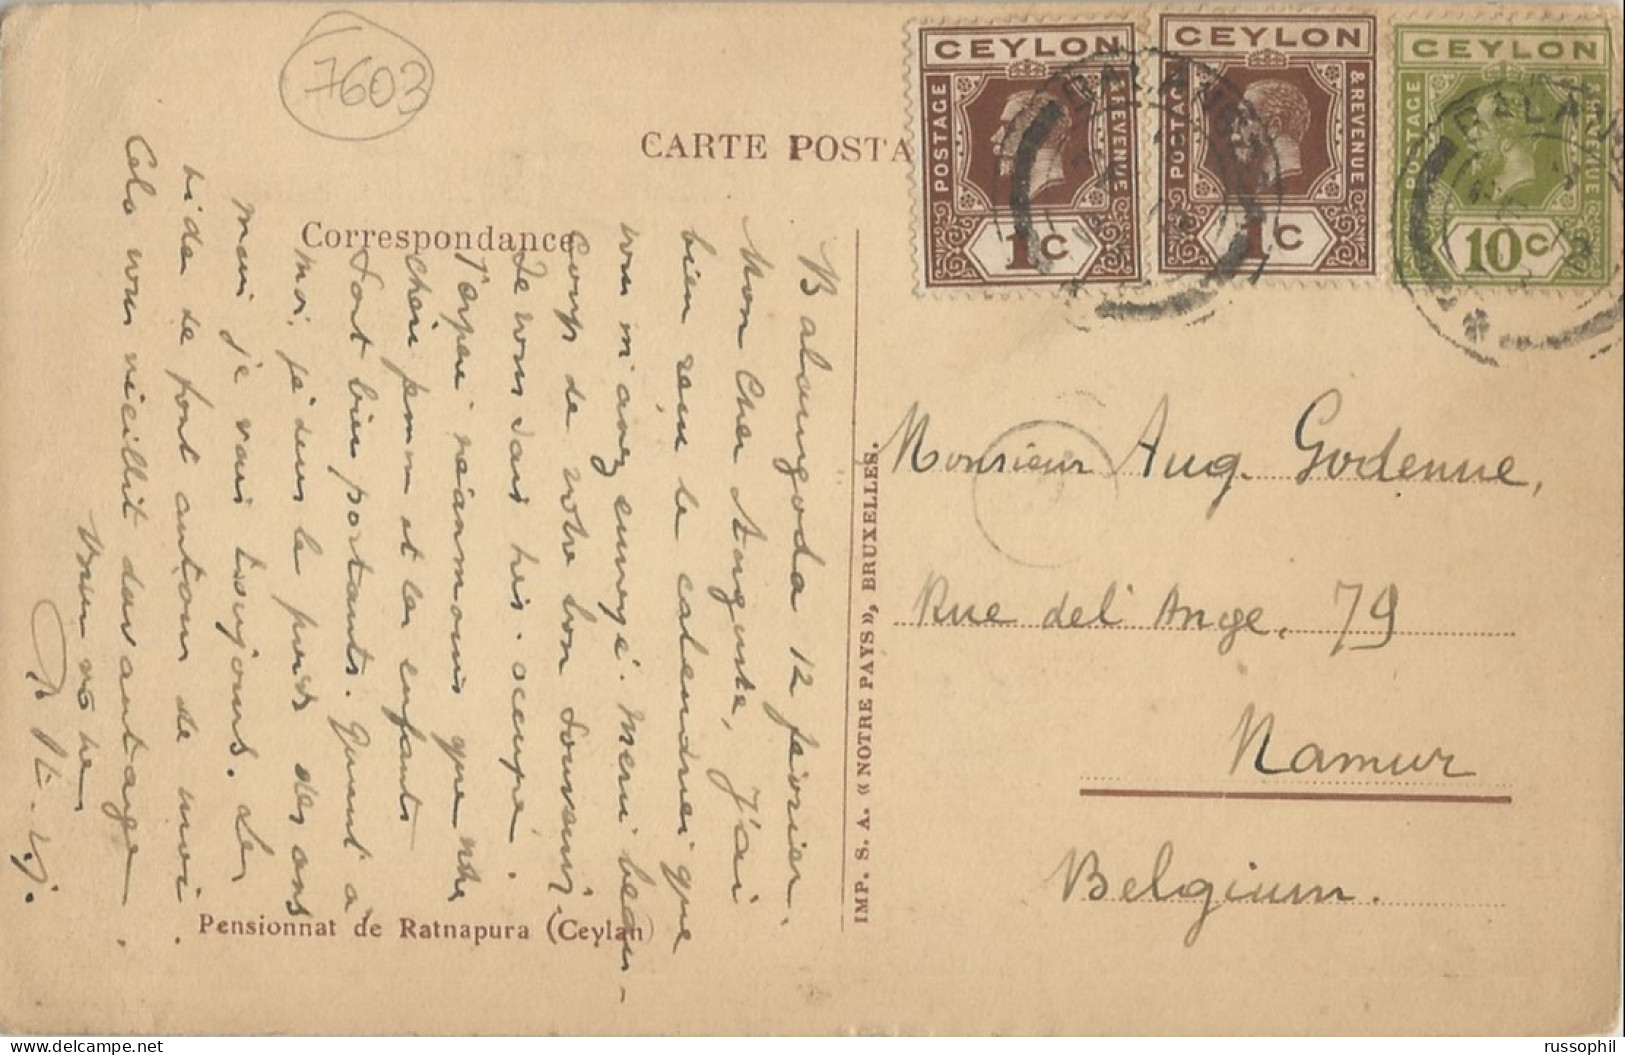 7603
CARTE POSTA
Correspondance
CEYLON
POSTAGE
& REVENUE
1c
CEYLON
POSTAGE
& REVENUE
1c
CEYLON
POSTAGE
& REVENUE
10c
BALANGODA
BALANG
Balangoda 12 février.
Mon Cher Auguste, J'ai
bien reçu le calendrier que
vous m'avez envoyé. Merci beau-
coup de votre bon souvenir.
Je vous sais très occupé.
J'espère néanmoins que votre
chère femme et les enfants
sont bien portants. Quant à
moi, je sens le poids des ans
mais je vais toujours. Le
vide se fait autour de moi.
Cela vous vieillit davantage.
Pensionnat de Ratnapura (Ceylan)
IMP. S. A. « NOTRE PAYS », BRUXELLES.
Monsieur Aug. Godenne,
Rue de l'Ange, 79
Namur
Belgium.
russophil - delcampe.net